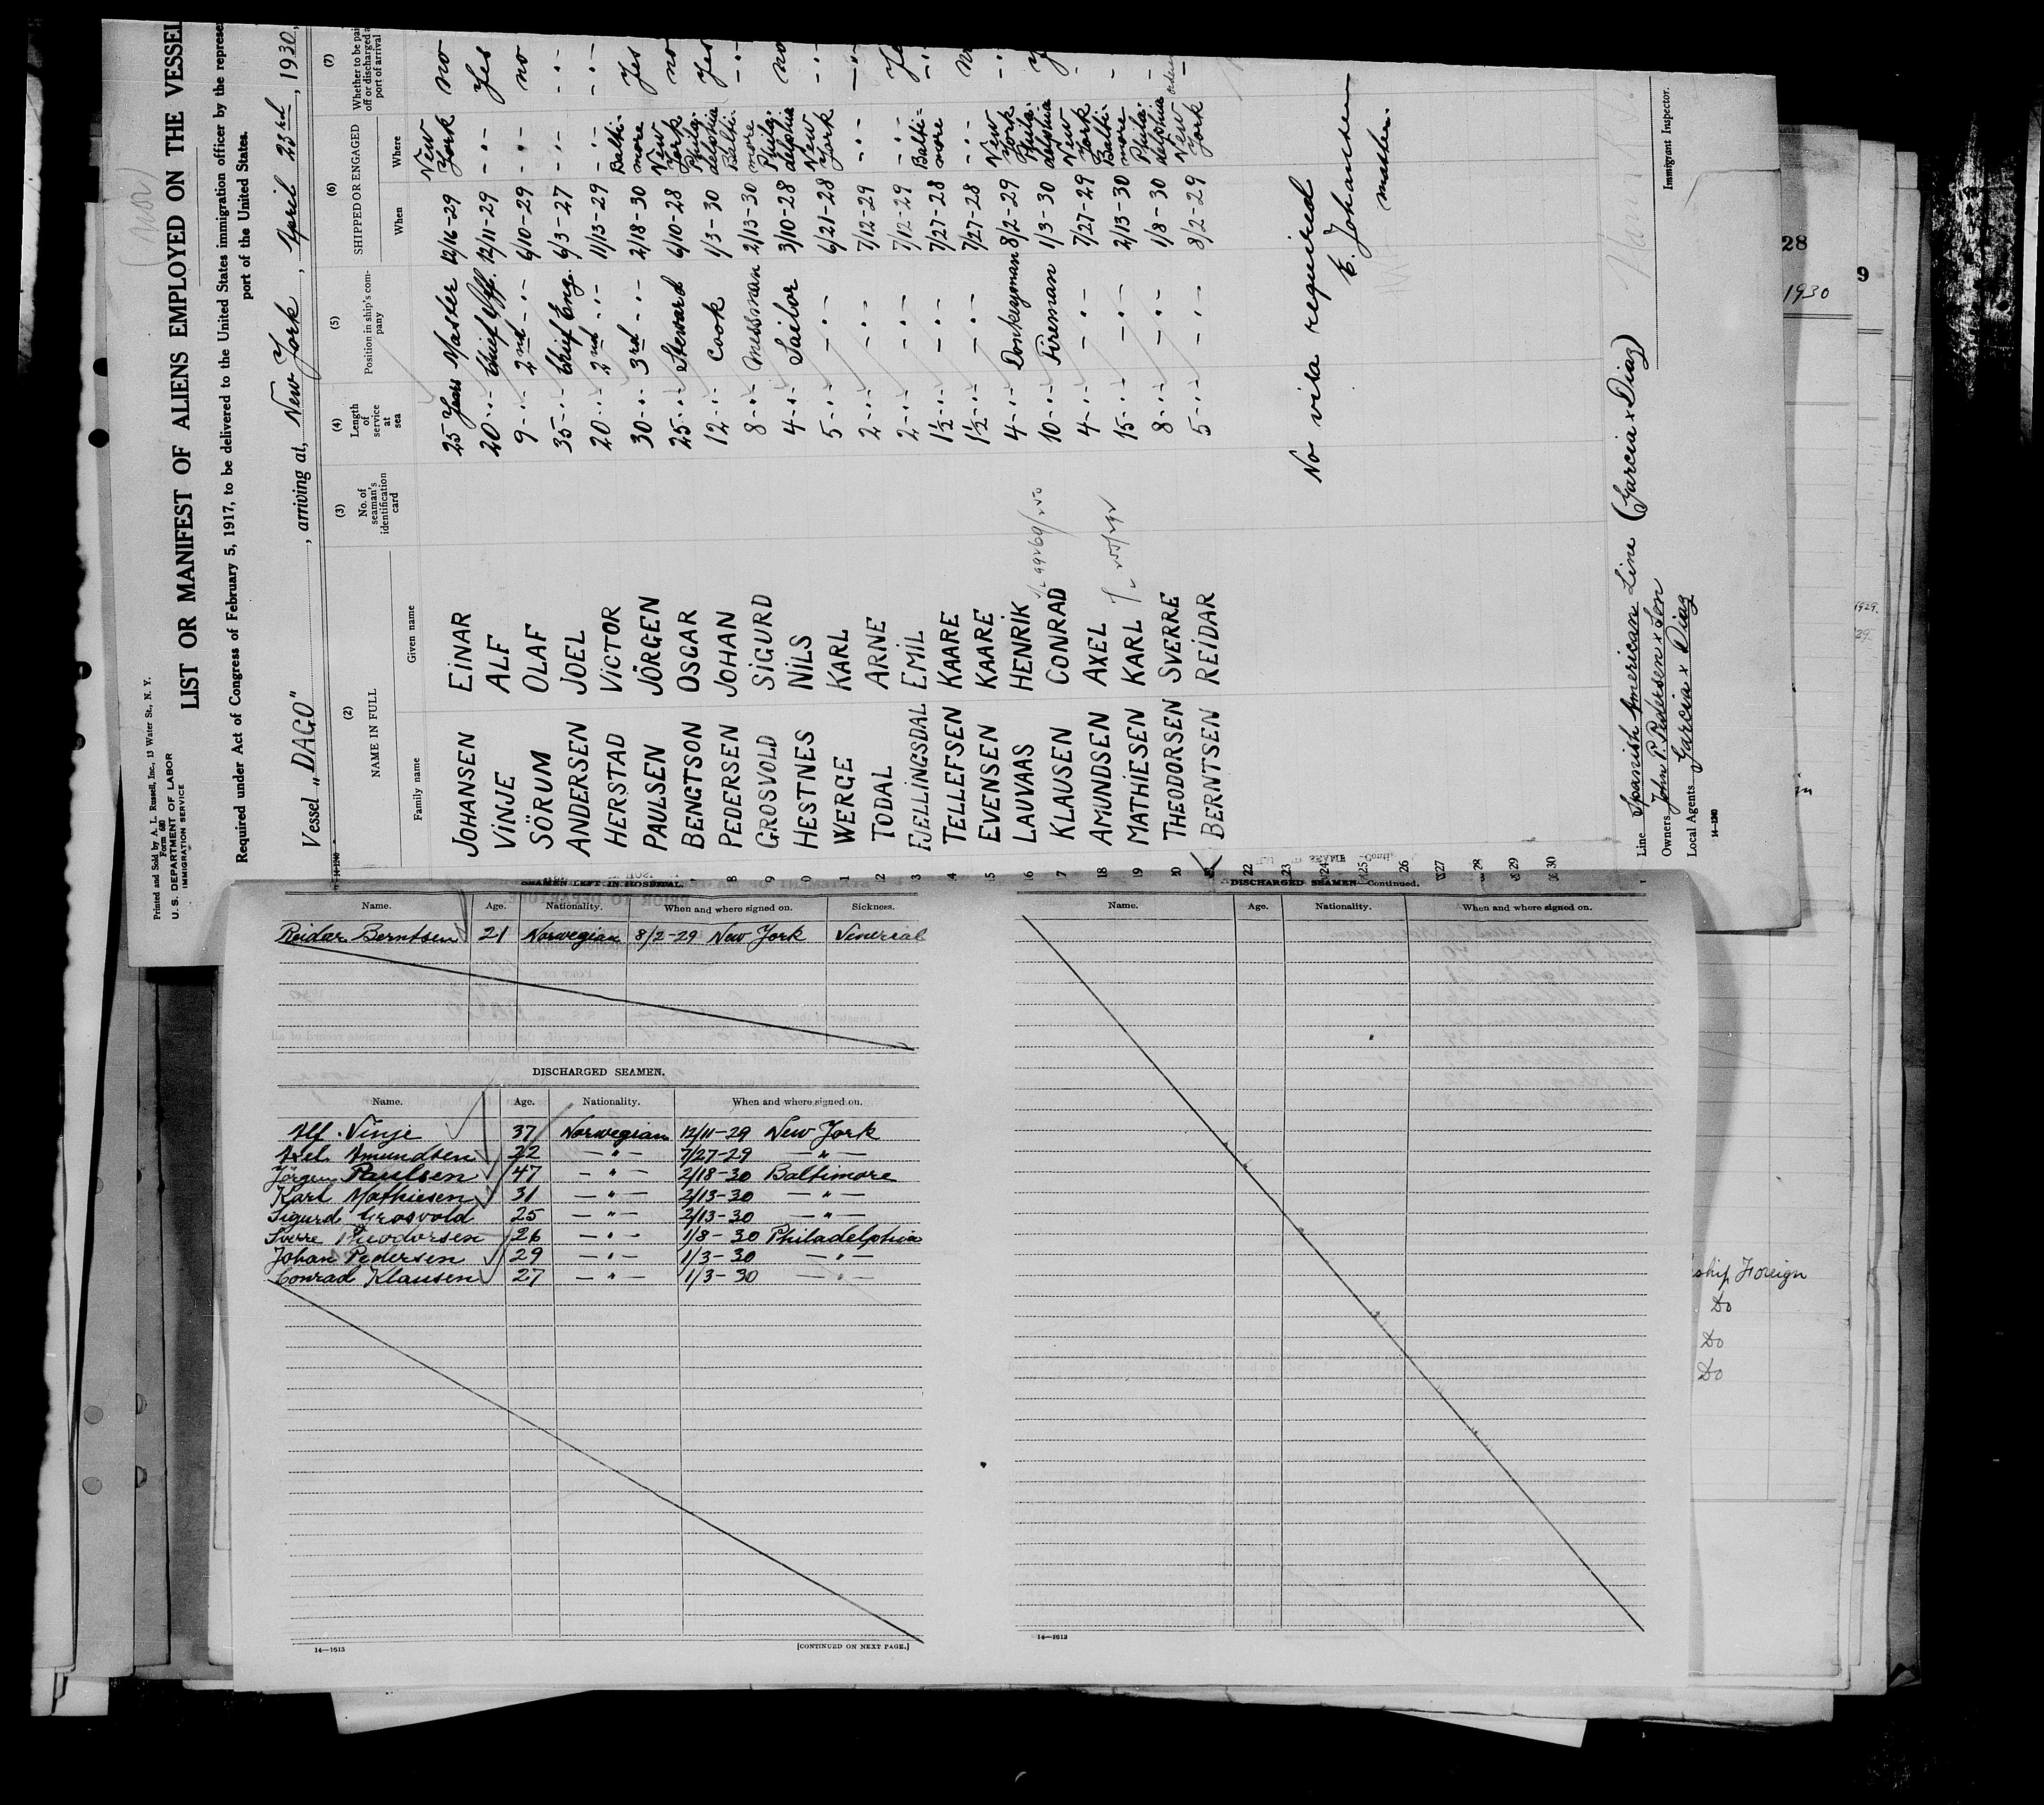 (nor)
Printed and Sold by A. L. Russell, Inc., 13 Water St., N. Y.
Form 680
U. S. DEPARTMENT OF LABOR
IMMIGRATION SERVICE
LIST OR MANIFEST OF ALIENS EMPLOYED ON THE VESSEL
Required under Act of Congress of February 5, 1917, to be delivered to the United States immigration officer by the represe
port of the United States.
Vessel "DAGO", arriving at, New York, April 23rd, 1930
14-1240
(2) (3) (4) (5) (6) (7)
NAME IN FULL No. of seaman's identification card Length of service at sea Position in ship's company SHIPPED OR ENGAGED Whether to be pai off or discharged a port of arrival
Family name Given name When Where
JOHANSEN EINAR 25 Years Master 12/16-29 New York no
VINJE ALF 20 -"- Chief Off. 12/11-29 -"- Yes
SÖRUM OLAF 9 -"- 2nd -"- 6/10-29 -"- no
ANDERSEN JOEL 35 -"- Chief Eng. 6/3-27 -"- -"-
HERSTAD VICTOR 20 -"- 2nd -"- 11/13-29 -"- -"-
PAULSEN JÖRGEN 30 -"- 3rd -"- 2/18-30 Baltimore Yes
BENGTSON OSCAR 25 -"- Steward 6/10-28 New York no
8 PEDERSEN JOHAN 12 -"- Cook 1/3-30 Philadelphia Yes
9 GROSVOLD SIGURD 8 -"- Messman 2/13-30 Baltimore -"-
0 HESTNES NILS 4 -"- Sailor 3/10-28 Philadelphia no
1 WERGE KARL 5 -"- -"- 6/21-28 New York -"-
2 TODAL ARNE 2 -"- -"- 7/12-29 -"- -"-
3 FJELLINGSDAL EMIL 2 -"- -"- 7/12-29 -"-
4 TELLEFSEN KAARE 1½ -"- -"- 7/27-28 Baltimore -"-
5 EVENSEN KAARE 1½ -"- -"- 7/27-28 -"-
16 LAUVAAS HENRIK 4 -"- Donkeyman 8/2-29 New York -"-
17 KLAUSEN CONRAD 10 -"- Fireman 1/3-30 Philadelphia
18 AMUNDSEN AXEL 4 -"- -"- 7/27-29 New York
19 MATHIESEN KARL 15 -"- -"- 2/13-30 Baltimore
20 THEODORSEN SVERRE 8 -"- -"- 1/8-30 Philadelphia
21 BERNTSEN REIDAR 5 -"- -"- 8/2-29 New York
22
23
24
25
26
27
28
29
30
No visa required
E. Johansen
master.
Line Spanish American Line (Garcia x Diaz)
Owners John P. Pedersen x Son
Local Agents Garcia x Diaz
Immigrant Inspector.
14-1240
SEAMEN LEFT IN HOSPITAL.
Name. Age. Nationality. When and where signed on. Sickness.
Reidar Berntsen 21 Norwegian 8/2-29 New York Venereal
DISCHARGED SEAMEN.
Name. Age. Nationality. When and where signed on.
Alf Vinje 37 Norwegian 12/11-29 New York
Axel Amundsen 22 -"- 7/27-29 -"-
Jörgen Paulsen 47 -"- 2/18-30 Baltimore
Karl Mathiesen 31 -"- 2/13-30 -"-
Sigurd Grosvold 25 -"- 2/13-30 -"-
Sverre Theodorsen 26 -"- 1/8-30 Philadelphia
Johan Pedersen 29 -"- 1/3-30 -"-
Conrad Klausen 27 -"- 1/3-30 -"-
14—1613
[CONTINUED ON NEXT PAGE.]
DISCHARGED SEAMEN—Continued.
Name. Age. Nationality. When and where signed on.
14—1613
28
9
1930
1929.
ship Foreign
Do
Do
Do